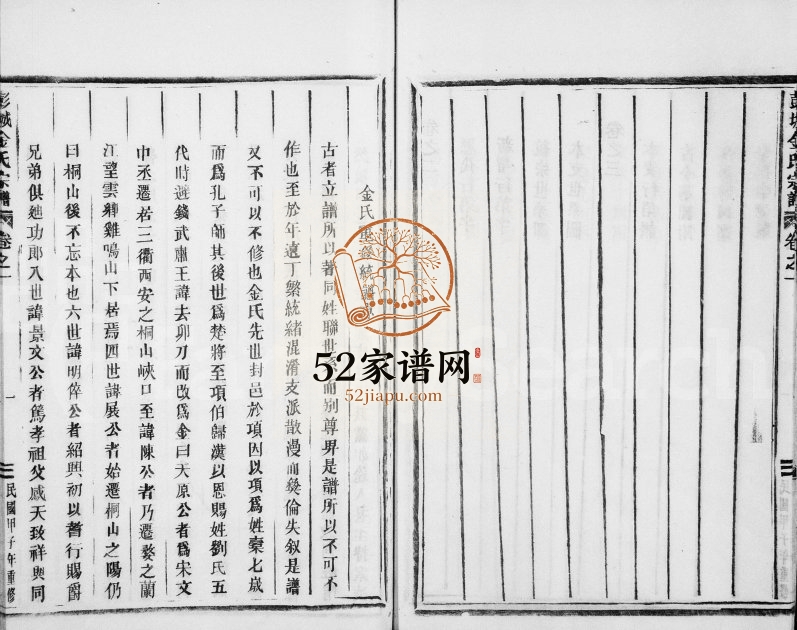 彭城金氏宗譜 卷之一
金氏
古者立譜所以著同姓聯世 而别尊卑是譜所以不可不
作也至於年遠丁繁統緒混淆支派散漫而彜倫失叙是譜
又不可以不修也金氏先世封邑於項因以項爲姓橐七歲
而爲孔子師其後世爲楚將至項伯歸漢以恩賜姓劉氏五
代時避錢武肅王諱去卯刀而改爲金曰天原公者爲宋文
中丞遷若三衢西安之桐山峽口至諱陳公者乃遷婺之蘭
江望雲鄉雞鳴山下居焉四世諱展公者始遷桐山之陽仍
曰桐山後不忘本也六世諱明 公者紹興初以耆行賜爵
兄弟俱廸功郎八世諱景文公者篤孝祖父感天致祥與同
彭城金氏宗譜 卷之一
一
民國甲子年重修
民國甲子年重修
52家谱网
52jiapu.com